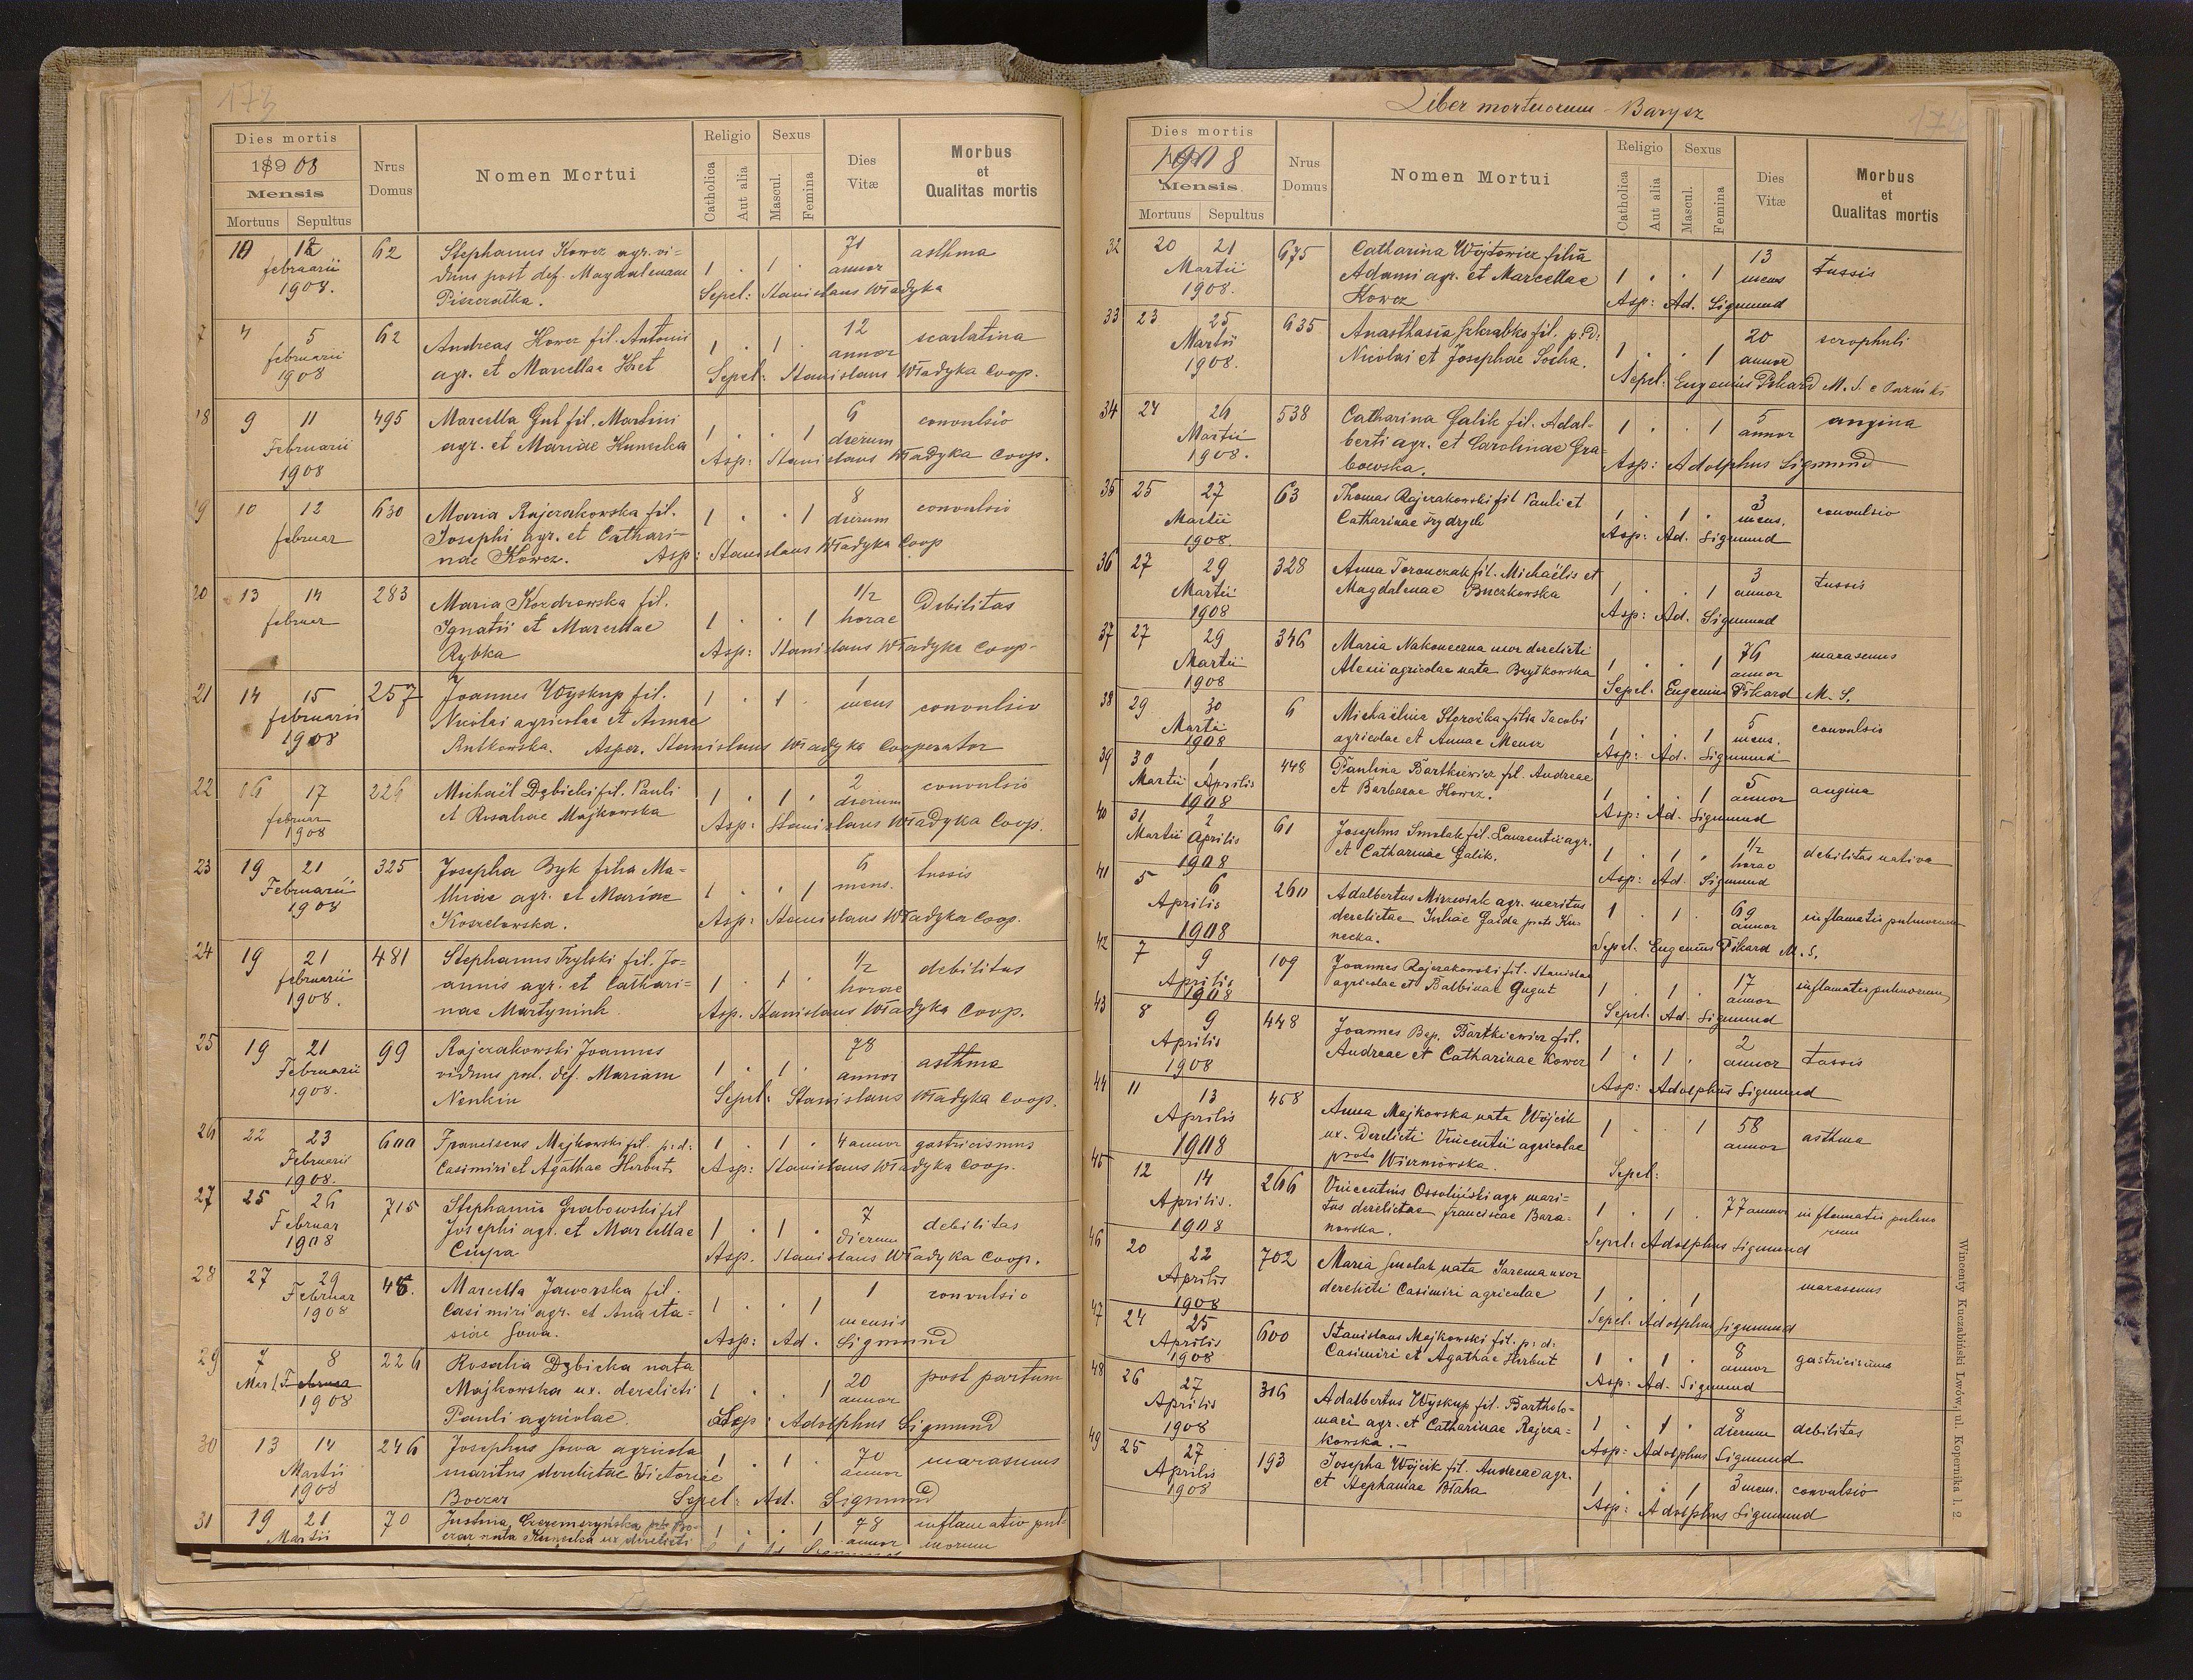 173
Dies mortis
1908
Mensis
Mortuus Sepultus
Nrus Domus
Nomen Mortui
Religio
Catholica
Aut alia
Sexus
Mascul.
Femina
Dies Vitæ
Morbus et Qualitas mortis
10 12 62 Stephanus Kowcz agr. vi- 71 asthma
februarii duus post def. Magdalenam 1 . 1 . annor
1908. Sepel: Stanislaus Władyka
7 4 5 62 Andreas Kowcz fil. Antonii 12 scarlatina
februarii agr. et Marcellae Hret 1 . 1 . annor
1908 Sepel: Stanislaus Władyka Coop.
18 9 11 495 Marcella Gut fil. Martini 6 convulsio
Februarii agr. et Mariae Kunecka 1 . . 1 dierum
1908 Asp: Stanislaus Władyka Coop.
19 10 12 630 Maria Rajczakowska fil. 8 convulsio
februar Josephi agr. et Cathari- 1 . . 1 dierum
nae Kowcz. Asp: Stanislaus Władyka Coop
20 13 14 283 Maria Kozdrowska fil. 1/2 Debilitas
februar Ignatii et Marcellae 1 . . 1 horae
Rybka Asp: Stanislaus Władyka Coop.
21 14 15 257 Joannes Wyskup fil. 1 . 1 . 1 mens convulsio
februarii Nicolai agricolae et Annae
1908 Rutkowska. Asper. Stanislaus Władyka Cooperator
22 16 17 226 Michaël Dębicki fil. Pauli 2 convulsio
februar et Rosaliae Majkowska 1 . 1 . dierum
1908 Asp: Stanislaus Władyka Coop.
23 19 21 325 Josepha Byk filia Ma- 6 tussis
Februarii thiae agr. et Mariae 1 . . 1 mens.
1908 Koszelowska. Asp: Stanislaus Władyka Coop.
24 19 21 481 Stephanus Trylski fil. Jo- 1/2 debilitas
februarii annis agr. et Cathari- 1 . 1 . horae
1908. nae Martyniuk. Asp. Stanislaus Władyka Coop.
25 19 21 99 Rajczakowski Joannes 78 asthma
Februarii viduus post. def. Mariam 1 . 1 . annor
1908. Nenkin Sepel: Stanislaus Władyka Coop.
26 22 23 600 Franciscus Majkowski fil. p: d: 1 . 1 . 4 annor gastricismus
Februarii Casimiri et Agathae Herbut
1908. Asp: Stanislaus Władyka Coop.
27 25 26 715 Stephanus Grabowski fil 7 debilitas
Februar Josephi agr. et Marcellae 1 . 1 . dierum
1908 Asp. Stanislaus Władyka Coop.
28 27 29 Marcella Jaworska fil. 1 convulsio
Februar Casimiri agr. et Anasta- 1 . . 1 mensis
1908 siae Sowa. Asp: Ad. Sigmund
29 7 8 226 Rosalia Dębicka nata 20 post partum
Mart Februa Majkowska ux. derelicti 1 . . 1 annor
1908 Pauli agricolae. Asp: Adolphus Sigmund
30 13 14 246 Josephus Sowa agricola 70 marasmus
Martii maritus derelictae Victoriae 1 . 1 . annor
1908 Boczar Sepel: Ad. Sigmund
31 19 21 70 Justina Czeremszyńska prto Bo- 1 . . 1 78 inflamatio pul-
Martii czar nata Kunecka ux derelicti annor monum
Liber mortuorum - Barysz
174
Dies mortis
1908
Mensis.
Mortuus Sepultus
Nrus Domus
Nomen Mortui
Religio
Catholica
Aut alia
Sexus
Mascul.
Femina
Dies Vitæ
Morbus et Qualitas mortis
32 20 21 675 Catharina Wojtowicz filia 13 tussis
Martii Adami agr. et Marcellae 1 . . 1 mens
1908. Kowcz Asp: Ad. Sigmund
33 23 25 635 Anasthasia fil. p: d: 20 scrophuli
Martii Nicolai et Josephae Socha. 1 . . 1 annor
1908. Sepel: Eugenius Pikard M. S.
34 24 26 538 Catharina Galik fil. Adal- 1 . . 1 5 angina
Martii berti agr. et Carolinae Gra- annor
1908. bowska. Asp: Adolphus Sigmund
35 25 27 63 Thomas Rajczakowski fil Pauli et 3 convulsio
Martii Catharinae Frydrych 1 . 1 . mens.
1908. Asp: Ad. Sigmund
36 27 29 328 Anna Toronczak fil. Michaëlis et 3 tussis
Martii Magdalenae Buczkowska 1 . . 1 annor
1908 Asp: Ad. Sigmund
37 27 29 346 Maria Nakoneczna uxor derelicti 76 marasmus
Martii Alexii agricolae nata Brytkowska 1 . . 1 annor
1908 Sepel. Eugenius Pikard M. S.
38 29 30 6 Michaëlina Storoška filia Jacobi 5 convulsio
Martii agricolae et Annae Mensz 1 . . 1 mens.
1908 Asp: Ad. Sigmund
39 30 1 448 Paulina Bartkiewicz fil. Andreae 5 angina
Martii Aprilis et Barbarae Kowcz. 1 . . 1 annor
1908 Asp: Ad. Sigmund
40 31 2 61 Josephus Smolak fil. Laurentii agr. 1/2 debilitas nativa
Martii Aprilis et Catharinae Galik. 1 . 1 . horae
1908 Asp: Ad. Sigmund
41 5 6 260 Adalbertus Mizewiak agr. maritus 69 inflamatio pulmonum
Aprilis derelictae Juliae Gaida proto Ku- 1 . 1 . annor
1908 necka. Sepel. Eugenius Pikard M. S.
42 7 9 109 Joannes Rajczakowski fil. Stanislai 17 inflamatio pulmonum
Aprilis agricolae et Balbinae Gugut 1 . 1 . annor
1908 Sepel: Ad. Sigmund
43 8 9 448 Joannes Bap. Bartkiewicz fil. 2 tussis
Aprilis Andreae et Catharinae Kowcz 1 . 1 . annor
1908 Asp: Adolphus Sigmund
44 11 13 458 Anna Majkowska nata Wójcik 58 asthma
Aprilis ux. Derelicti Vincentii agricolae 1 . . 1 annor
1908 proto Wiszniowska. Sepel:
45 12 14 266 Vincentius Ossoliński agr. mari- 77 annor inflamatio pulmo
Aprilis. tus derelictae franciscae Bara- 1 . 1 . num
1908 nowska. Sepel: Adolphus Sigmund
46 20 22 702 Maria Smolak nata Jarema uxor marasmus
Aprilis derelicti Casimiri agricolae 1 . . 1
1908 Sepel: Adolphus Sigmund
47 24 25 600 Stanislaus Majkowski fil. p: d: 8 gastricismus
Aprilis Casimiri et Agathae Herbut 1 . 1 . annor
1908 Asp: Ad. Sigmund
48 26 27 316 Adalbertus Wyskup fil. Bartholo- 8 debilitas
Aprilis maei agr. et Catharinae Rajcza- 1 . 1 . dierum
1908 kowska.- Asp: Adolphus Sigmund
49 25 27 193 Josepha Wójcik fil. Andreae agr. 3 mens. convulsio
Aprilis et Stephaniae Błaha 1 . . 1
1908 Asp: Adolphus Sigmund
Wincenty Kuczabiński Lwów, ul. Kopernika l. 2.